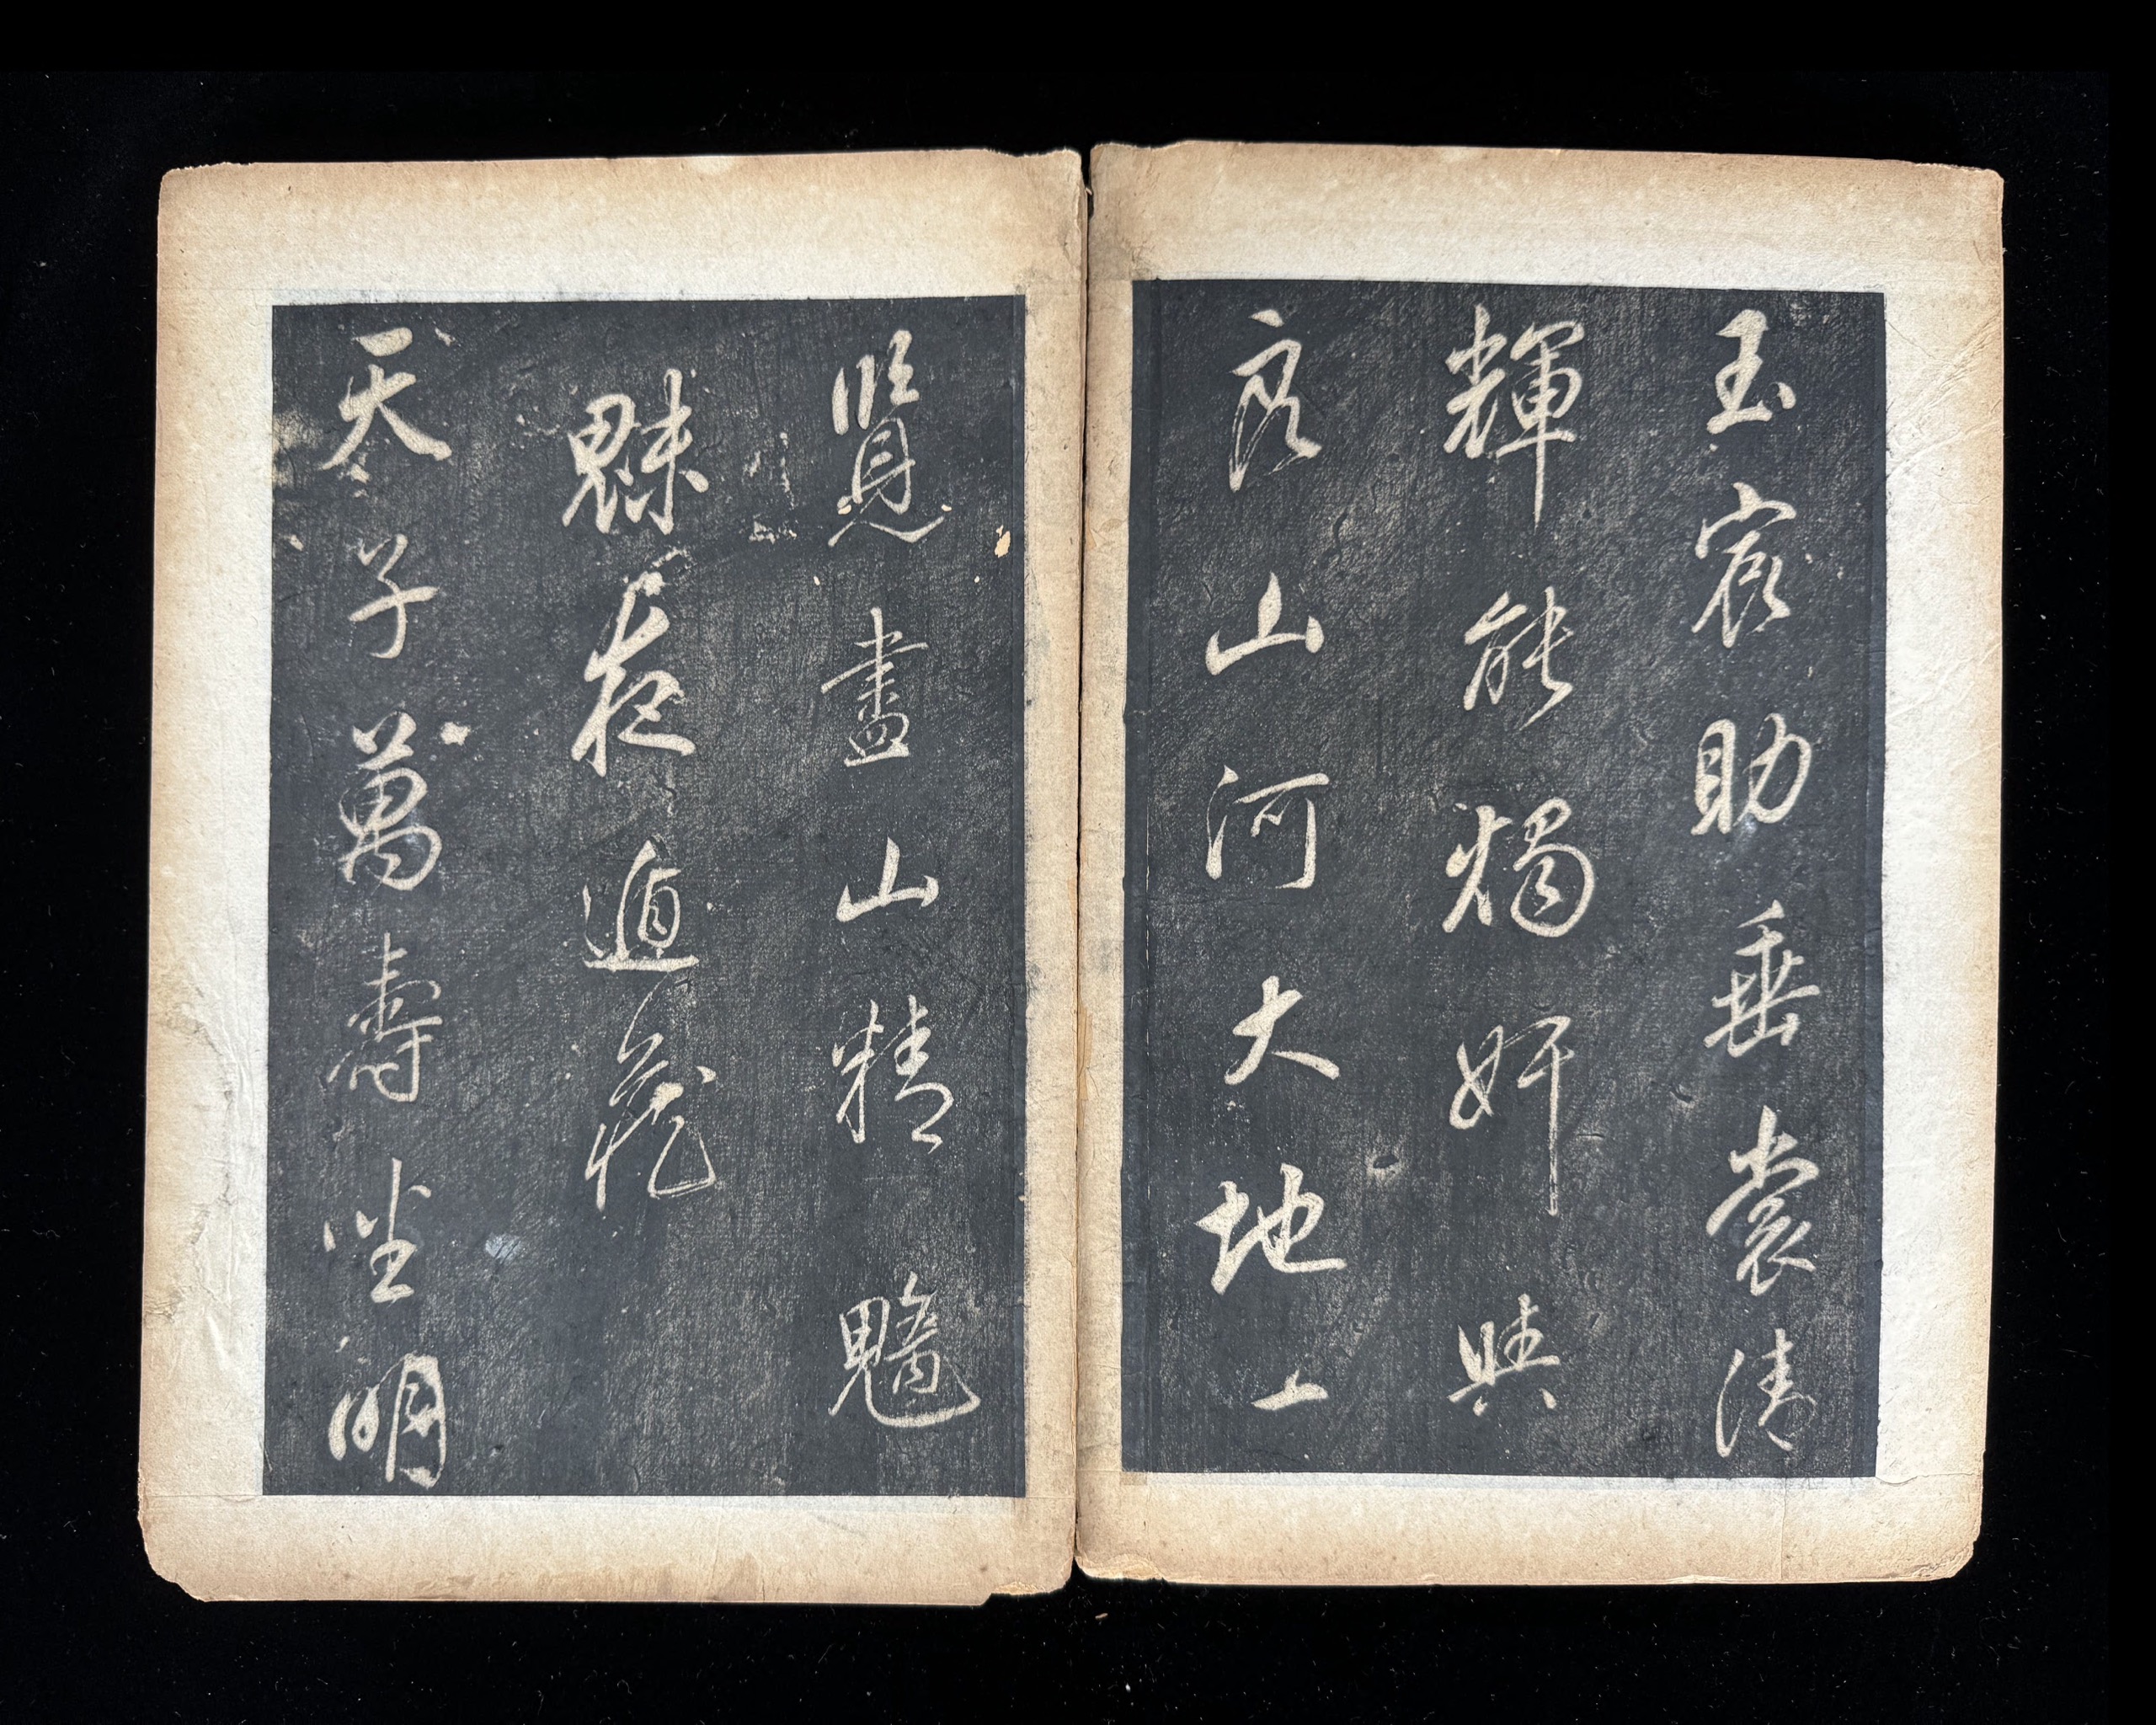 玉宸助垂裳清
輝能燭奸與
良山河大地上
覽盡山精魑
魅夜遁藏
天子萬壽坐明